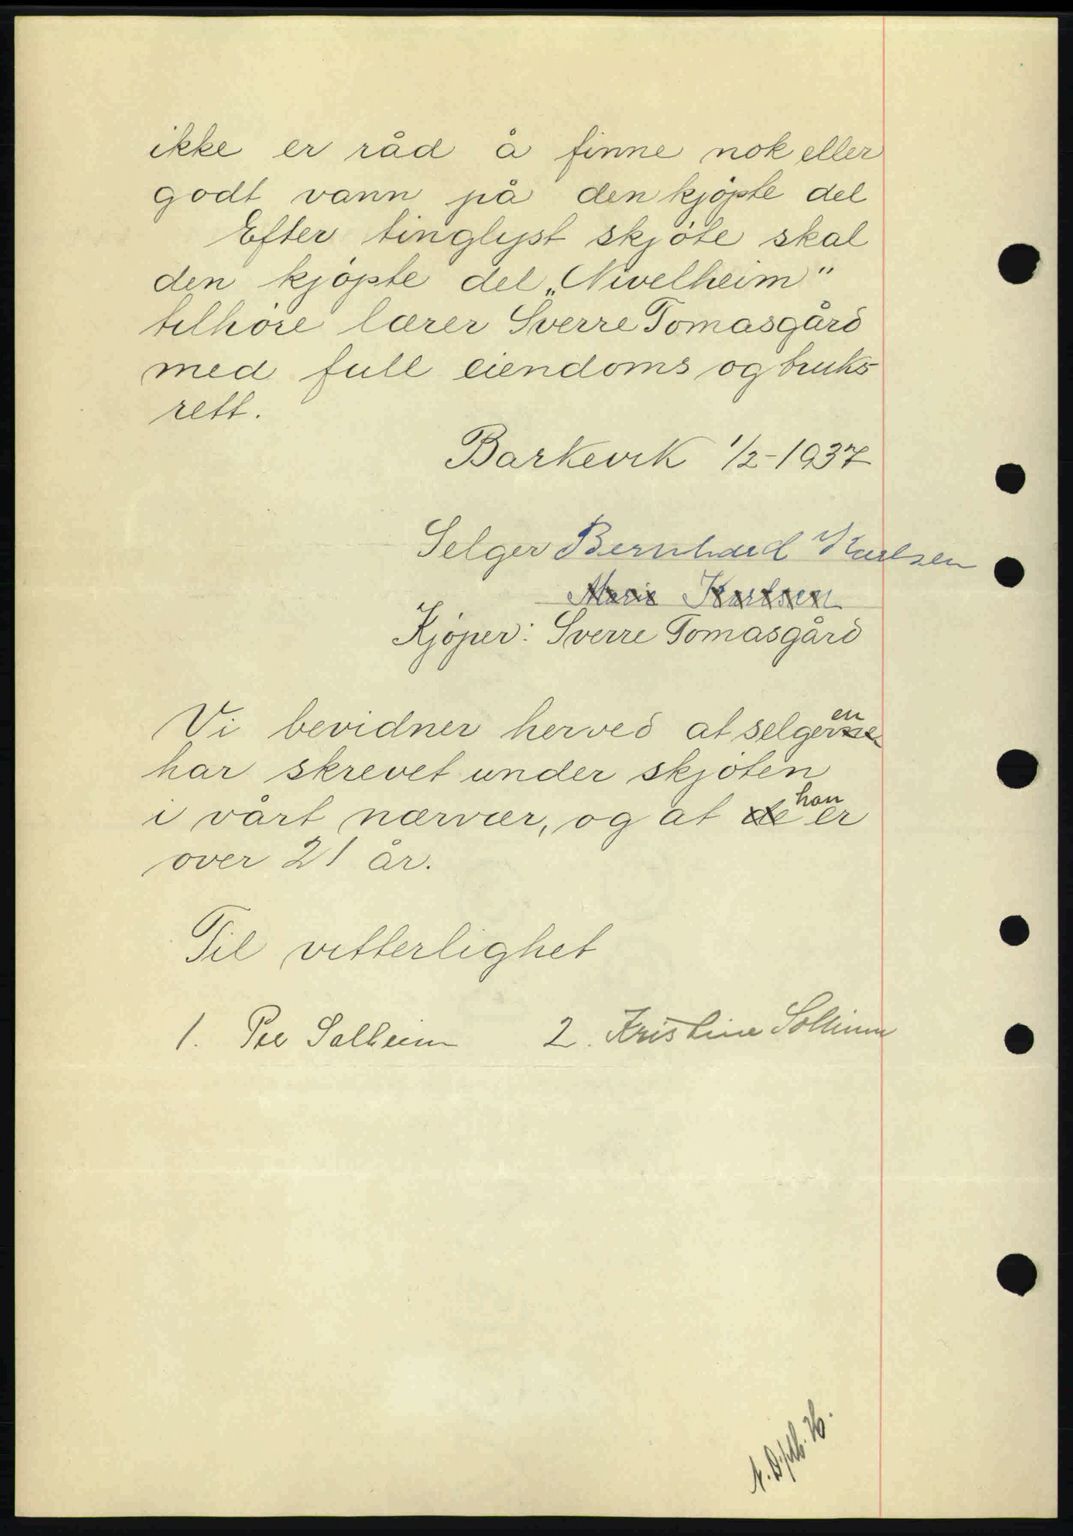 ikke er råd å finne nok eller
godt vann på den kjøpte del
Efter tinglyst skjøte skal
den kjøpte del „Nivelheim"
tilhøre lærer Sverre Tomasgård
med full eiendoms og bruks-
rett.
Barkevik 1/2-1937
Selger Bernhard Karlsen
Marie Karlsen
Kjøper: Sverre Tomasgård
Vi bevidner herved at selgerne en
har skrevet under skjøten
i vårt nærvær, og at de han er
over 21 år.
Til vitterlighet
1. Per Solheim 2. Kristine Solheim